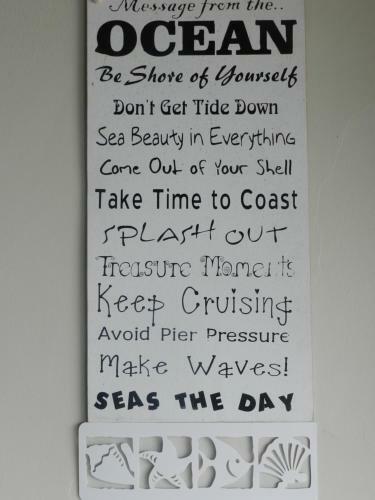 Message from the..
OCEAN
Be Shore of Yourself
Don't Get Tide Down
Sea Beauty in Everything
Come Out of Your Shell
Take Time to Coast
SPLASH OUT
Treasure Moments
Keep Cruising
Avoid Pier Pressure
Make Waves!
SEAS THE DAY